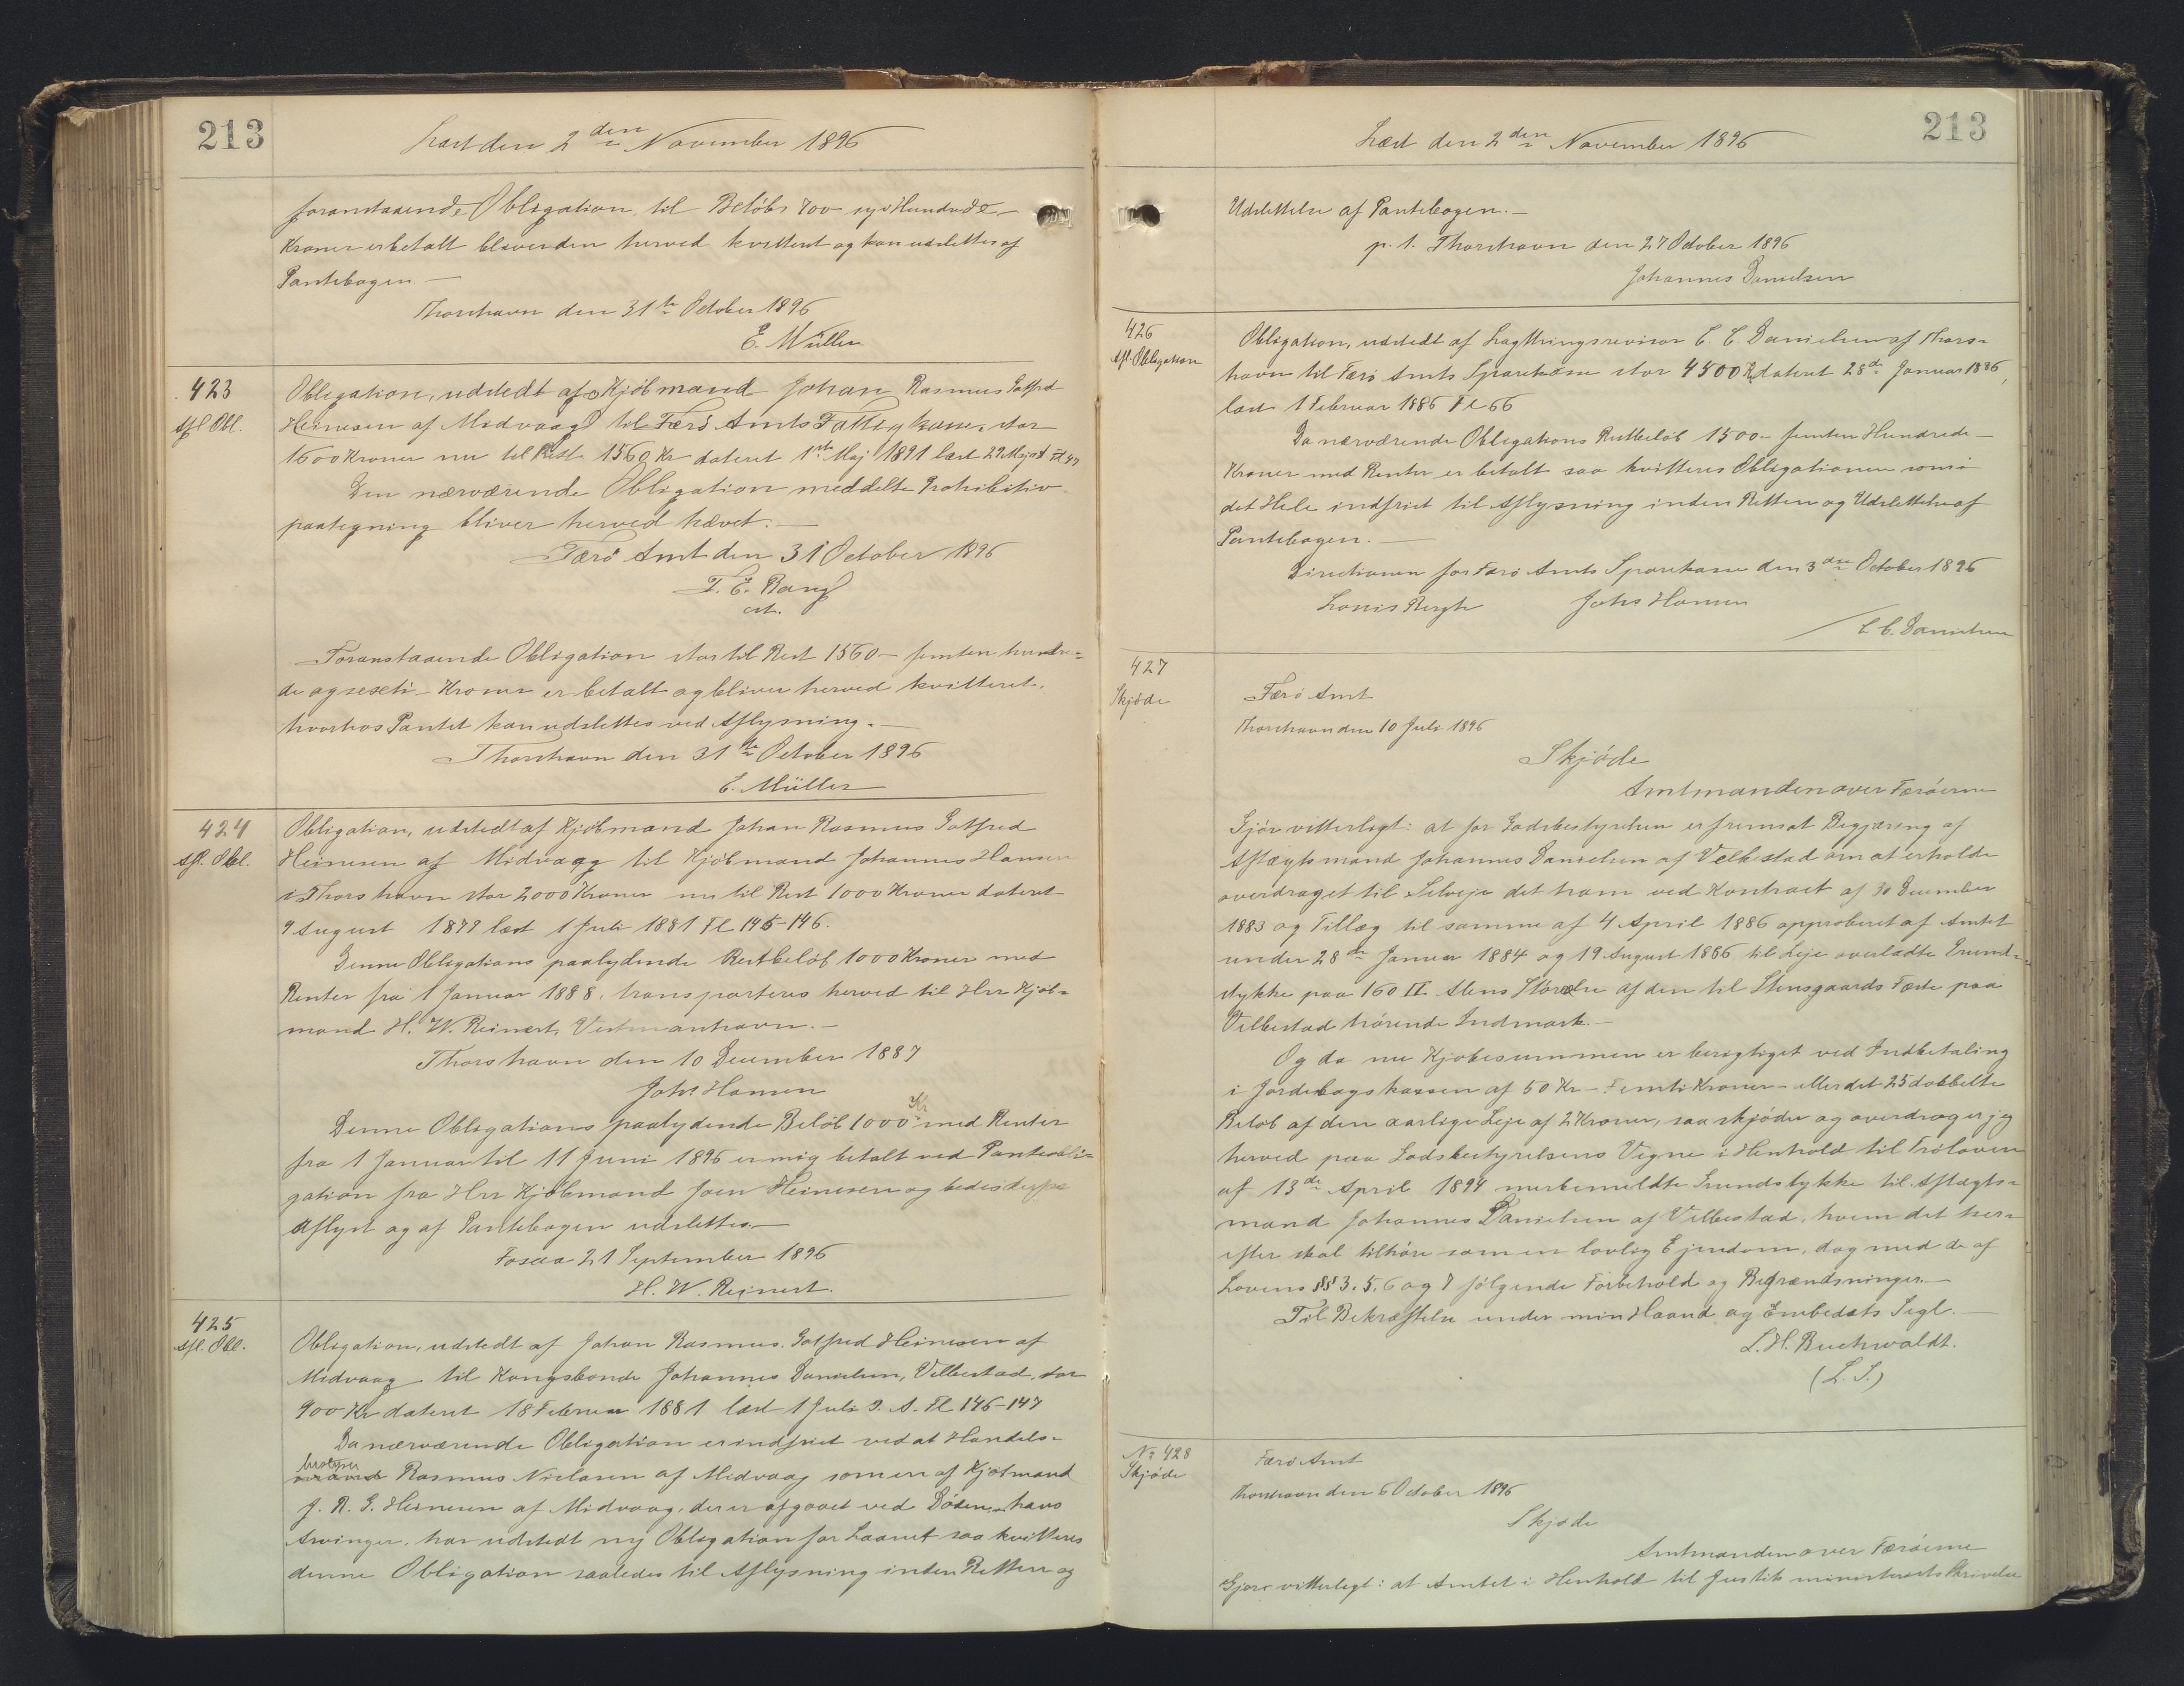 213
Læst den 2den November 1896
foranstaaende Obligation til Beløb 700 syv Hundrede
Kroner er betalt bliver den herved kvitteret og kan udslettes af
Pantebogen
Thorshavn den 31te October 1896
E. Müller
423
Afl Obl.
Obligation, udstedt af Kjøbmand Johan Rasmus Gotfred
Heinesen af Midvaag til Færø Amts Fattigkasse, stor
1600 Kroner nu til Rest 1560 Kr dateret 1ste Maj 1891 læst 29 Maj
Den nærværende Obligation meddelte Prohibitiv
paategning bliver herved hævet.
Færø Amt den 31 October 1896
F. E. Bang
cst.
Foranstaaende Obligation stor til Rest 1560 - femten hundre=
de og sexti - Kroner er betalt og bliver herved kvitteret,
hvorhos Pantet kan udslettes ved Aflysning.
Thorshavn den 31te October 1896
E. Müller
424
Afl. Obl.
Obligation, udstedt af Kjøbmand Johan Rasmus Gotfred
Heinesen af Midvaag til Kjøbmand Johannes Hansen
i Thorshavn stor 2000 Kroner nu til Rest 1000 Kroner dateret
9 August 1879 læst 1 Juli 1881 Fl 145-146.
Denne Obligations paalydende Restbeløb 1000 Kroner med
Renter fra 1 Januar 1888, transporteres herved til Hrr Kjøb=
mand H. W. Reinert, Vestmanhavn.
Thorshavn den 10 December 1887
Johs Hansen
Denne Obligations paalydende Beløb 1000 Kr med Renter
fra 1 Januar til 11 Juni 1896 er mig betalt ved Panteobli=
gation fra Hrr Kjøbmand Joen Heinesen og bedes derfor
aflyst og af Pantebogen udslettes.
Fosaa 21 September 1896
H. W. Reinert.
425
Afl. Obl.
Obligation, udstedt af Johan Rasmus Gotfred Heinesen af
Midvaag til Kongsbonde Johannes Danielsen, Velbestad, stor
900 Kr dateret 18 Februar 1881 læst 1 Juli s. A. Fl 146-147
Da nærværende Obligation er indfriet ved at Handels=
bestyrer Rasmus Nielsen af Midvaag som en af Kjøbmand
J. R. G. Heinesen af Midvaag, der er afgaaet ved Døden, hans
Arvinger, har udstedt ny Obligation for Laanet saa kvitteres
denne Obligation saaledes til Aflysning inden Retten og
213
Læst den 2den November 1896
Udslettelse af Pantebogen.
p. t. Thorshavn den 27 October 1896
Johannes Danielsen
426
Afl. Obligation
Obligation, udstedt af Lagthingsrevisor C. C. Danielsen af Thors=
havn til Færø Amts Sparekasse stor 4500 Kr dateret 28de Januar 1886,
læst 1 Februar 1886 Fl 66
Da nærværende Obligations Restbeløb 1500 - femten Hundrede -
Kroner med Renter er betalt saa kvitteres Obligationen som i
det Hele indfriet til Aflysning inden Retten og Udslettelse af
Pantebogen.
Directionen for Færø Amts Sparekasse den 3die October 1896
Louis Bergh Johs Hansen
/ C. C. Danielsen
427
Skjøde
Færø Amt
Thorshavn den 10 Juli 1896
Skjøde
Amtmanden over Færøerne
Gjør vitterligt: at for Godsbestyrelsen er fremsat Begjæring af
Aftægtsmand Johannes Danielsen af Velbestad om at erholde
overdraget til Selveje det ham ved Kontract af 30 December
1883 og Tillæg til samme af 4 April 1886 approberet af Amtet
under 28de Januar 1884 og 19 August 1886 til Leje overladte Grund=
stykke paa 160 □ Alens Størrelse af den til Stensgaards Fæste paa
Velbestad hørende Indmark.
Og da nu Kjøbesummen er berigtiget ved Indbetaling
i Jordebogskassen af 50 Kr - Femti Kroner - eller det 25 dobbelte
Beløb af den aarlige Leje af 2 Kroner, saa skjøder og overdrager jeg
herved paa Godsbestyrelsens Vegne i Henhold til Frøloven
af 13de April 1894 mermeldte Grundstykke til Aftægts=
mand Johannes Danielsen af Velbestad, hvem det her=
efter skal tilhøre som en lovlig Ejendom, dog med de af
Lovens §§ 3. 5. 6 og 7 følgende Forbehold og Begrændsninger.
Til Bekræftelse under min Haand og Embedets Segl.
L. H. Buchwaldt.
(L. S.)
No 428
Skjøde
Færø Amt
Thorshavn den 6 October 1896
Skjøde
Amtmanden over Færøerne
Gjør vitterligt: at Amtet i Henhold til Justitsministeriets Skrivelse